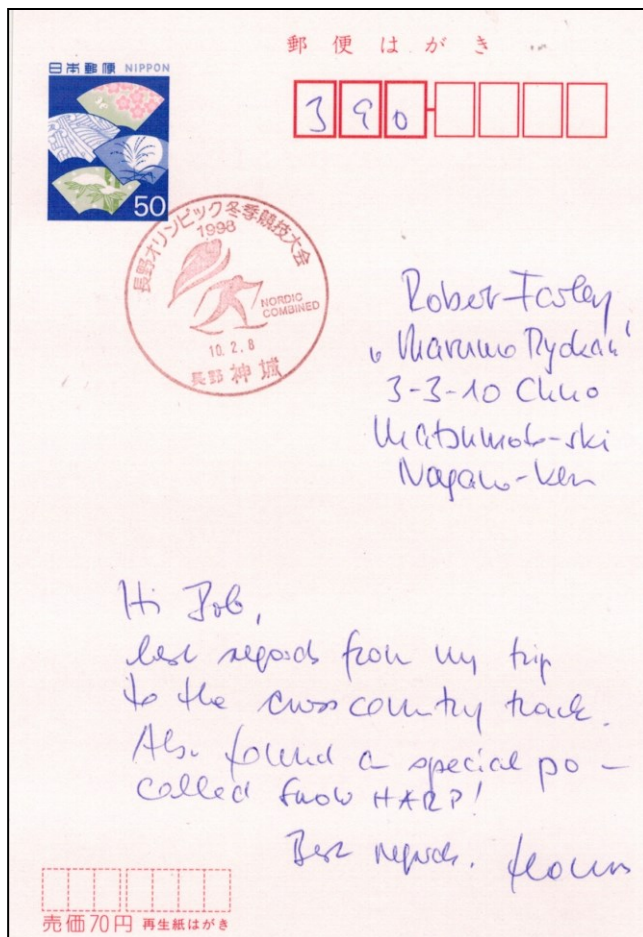 郵便はがき
日本郵便 NIPPON
390
50
長野オリンピック冬季競技大会
1998
NORDIC
COMBINED
10.2.8
長野 神城
Robert Farley
"Marumo Ryokan"
3-3-10 Chuo
Matsumoto-shi
Nagano-ken
Hi Bob,
best regards from my trip
to the cross country track.
Also found a special po –
called Snow HARP!
Best regards.
売価70円 再生紙はがき